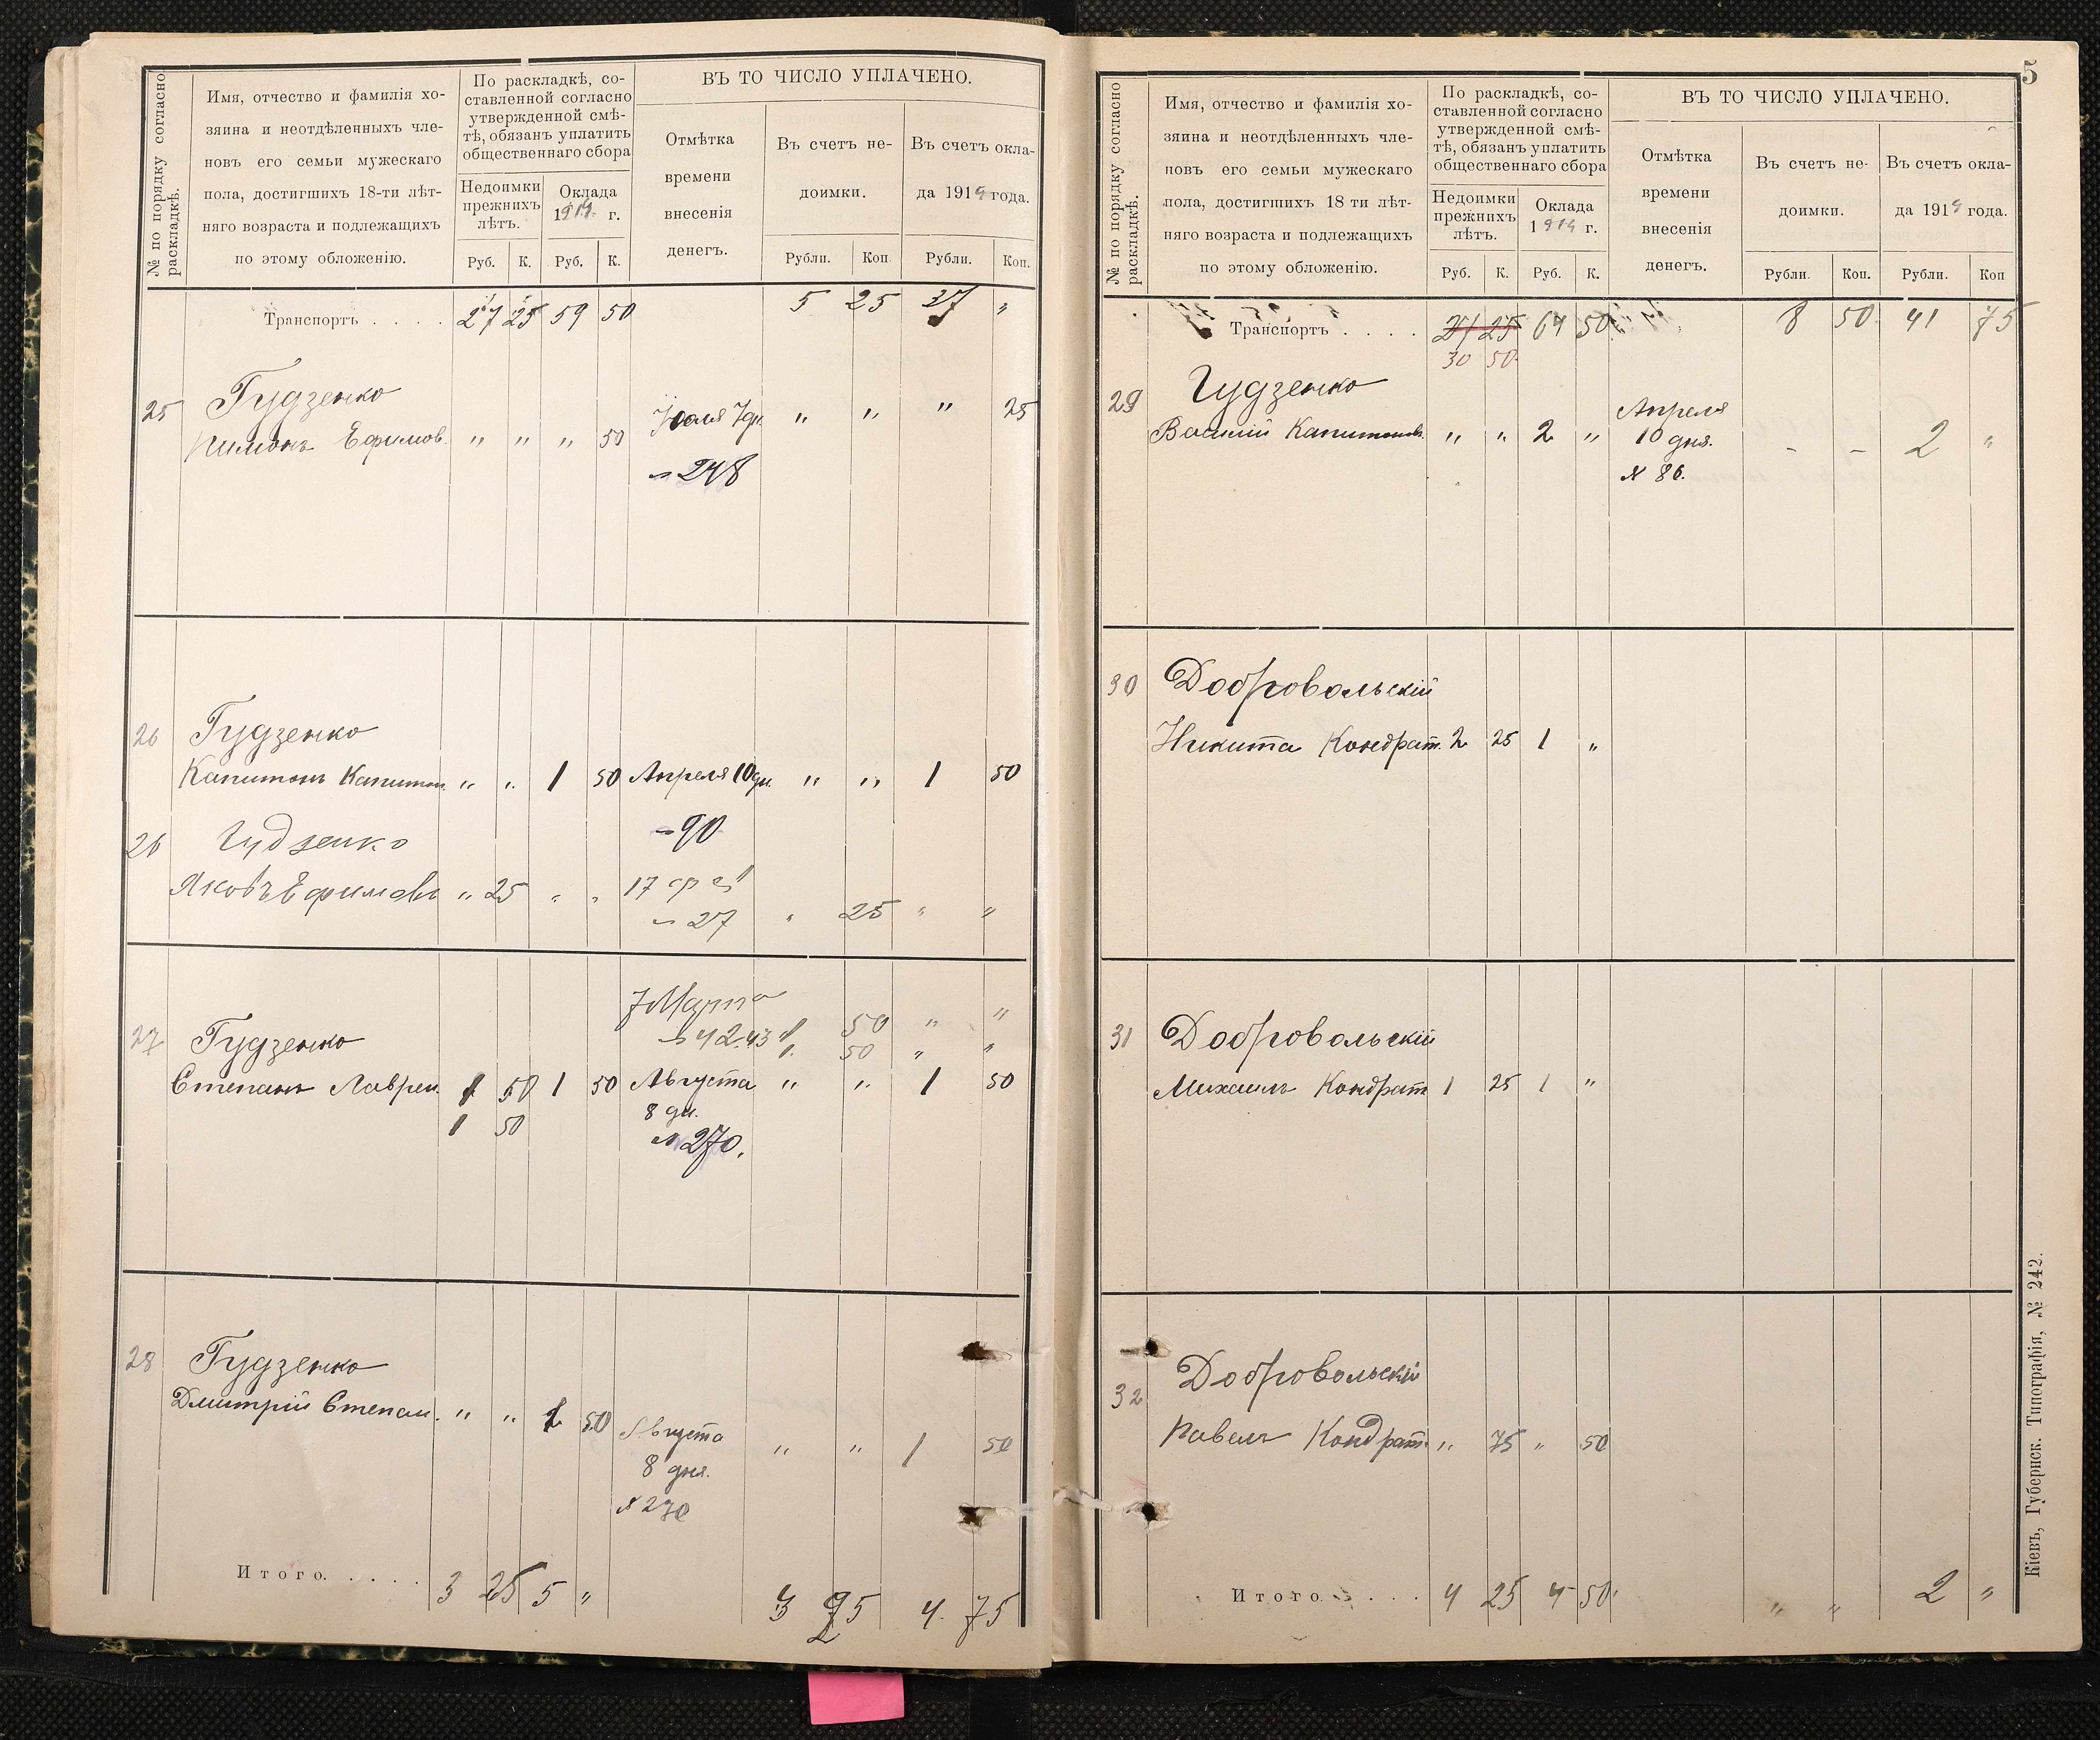 № по порядку согласно
раскладкѣ.
Имя, отчество и фамилія хо-
зяина и неотдѣленныхъ чле-
новъ его семьи мужескаго
пола, достигшихъ 18-ти лѣт-
няго возраста и подлежащихъ
по этому обложенію.
По раскладкѣ, со-
ставленной согласно
утвержденной смѣ-
тѣ, обязанъ уплатить
общественнаго сбора
Недоимки
прежнихъ
лѣтъ.
Оклада
1914 г.
Руб. К. Руб. К.
ВЪ ТО ЧИСЛО УПЛАЧЕНО.
Отмѣтка
времени
внесенія
денегъ.
Въ счетъ не-
доимки.
Въ счетъ окла-
да 1914 года.
Рубли. Коп. Рубли. Коп.
Транспортъ . . . . 27 25 59 50 5 25 37 "
25 Гудзенко
Пимонъ Ефимов. " " " 50 Іюля 7 дн. " " " 25
№ 248
26 Гудзенко
Капитонъ Капитон. " " 1 50 Апреля 10 дн. " " 1 50
№ 90
26 Гудзенко
Яковъ Ефимовъ " 25 " " 17
№ 27 " 25 " "
7 Марта
№ 42.43 50 " "
50 " "
27 Гудзенко
Степанъ Лаврен. 1 50 1 50 Августа " " 1 50
1 50 8 дн.
№ 270.
28 Гудзенко
Дмитрій Степан. " " 1 50 Августа " " 1 50
8 дня.
№ 270
Итого. . . . . 3 25 5 " 3 25 4. 75
5
№ по порядку согласно
раскладкѣ.
Имя, отчество и фамилія хо-
зяина и неотдѣленныхъ чле-
новъ его семьи мужескаго
пола, достигшихъ 18 ти лѣт-
няго возраста и подлежащихъ
по этому обложенію.
По раскладкѣ, со-
ставленной согласно
утвержденной смѣ-
тѣ, обязанъ уплатить
общественнаго сбора
Недоимки
прежнихъ
лѣтъ.
Оклада
1914 г.
Руб. К. Руб. К.
ВЪ ТО ЧИСЛО УПЛАЧЕНО.
Отмѣтка
времени
внесенія
денегъ.
Въ счетъ не-
доимки.
Въ счетъ окла-
да 1914 года.
Рубли. Коп. Рубли. Коп
Транспортъ . . . . 25 64 50 8 50 41 75
30 50
29 Гудзенко
Василій Капитонов. " " 2 " Апреля
10 дня. - - 2 "
№ 86.
30 Добровольскій
Никита Кондрат. 2 25 1 "
31 Добровольскій
Михаилъ Кондрат 1 25 1 "
32 Добровольскій
Павелъ Кондрат. " 75 " 50
Итого . . . . 4 25 4 50 " " 2 "
Кіевъ, Губернск. Типографія, № 242.